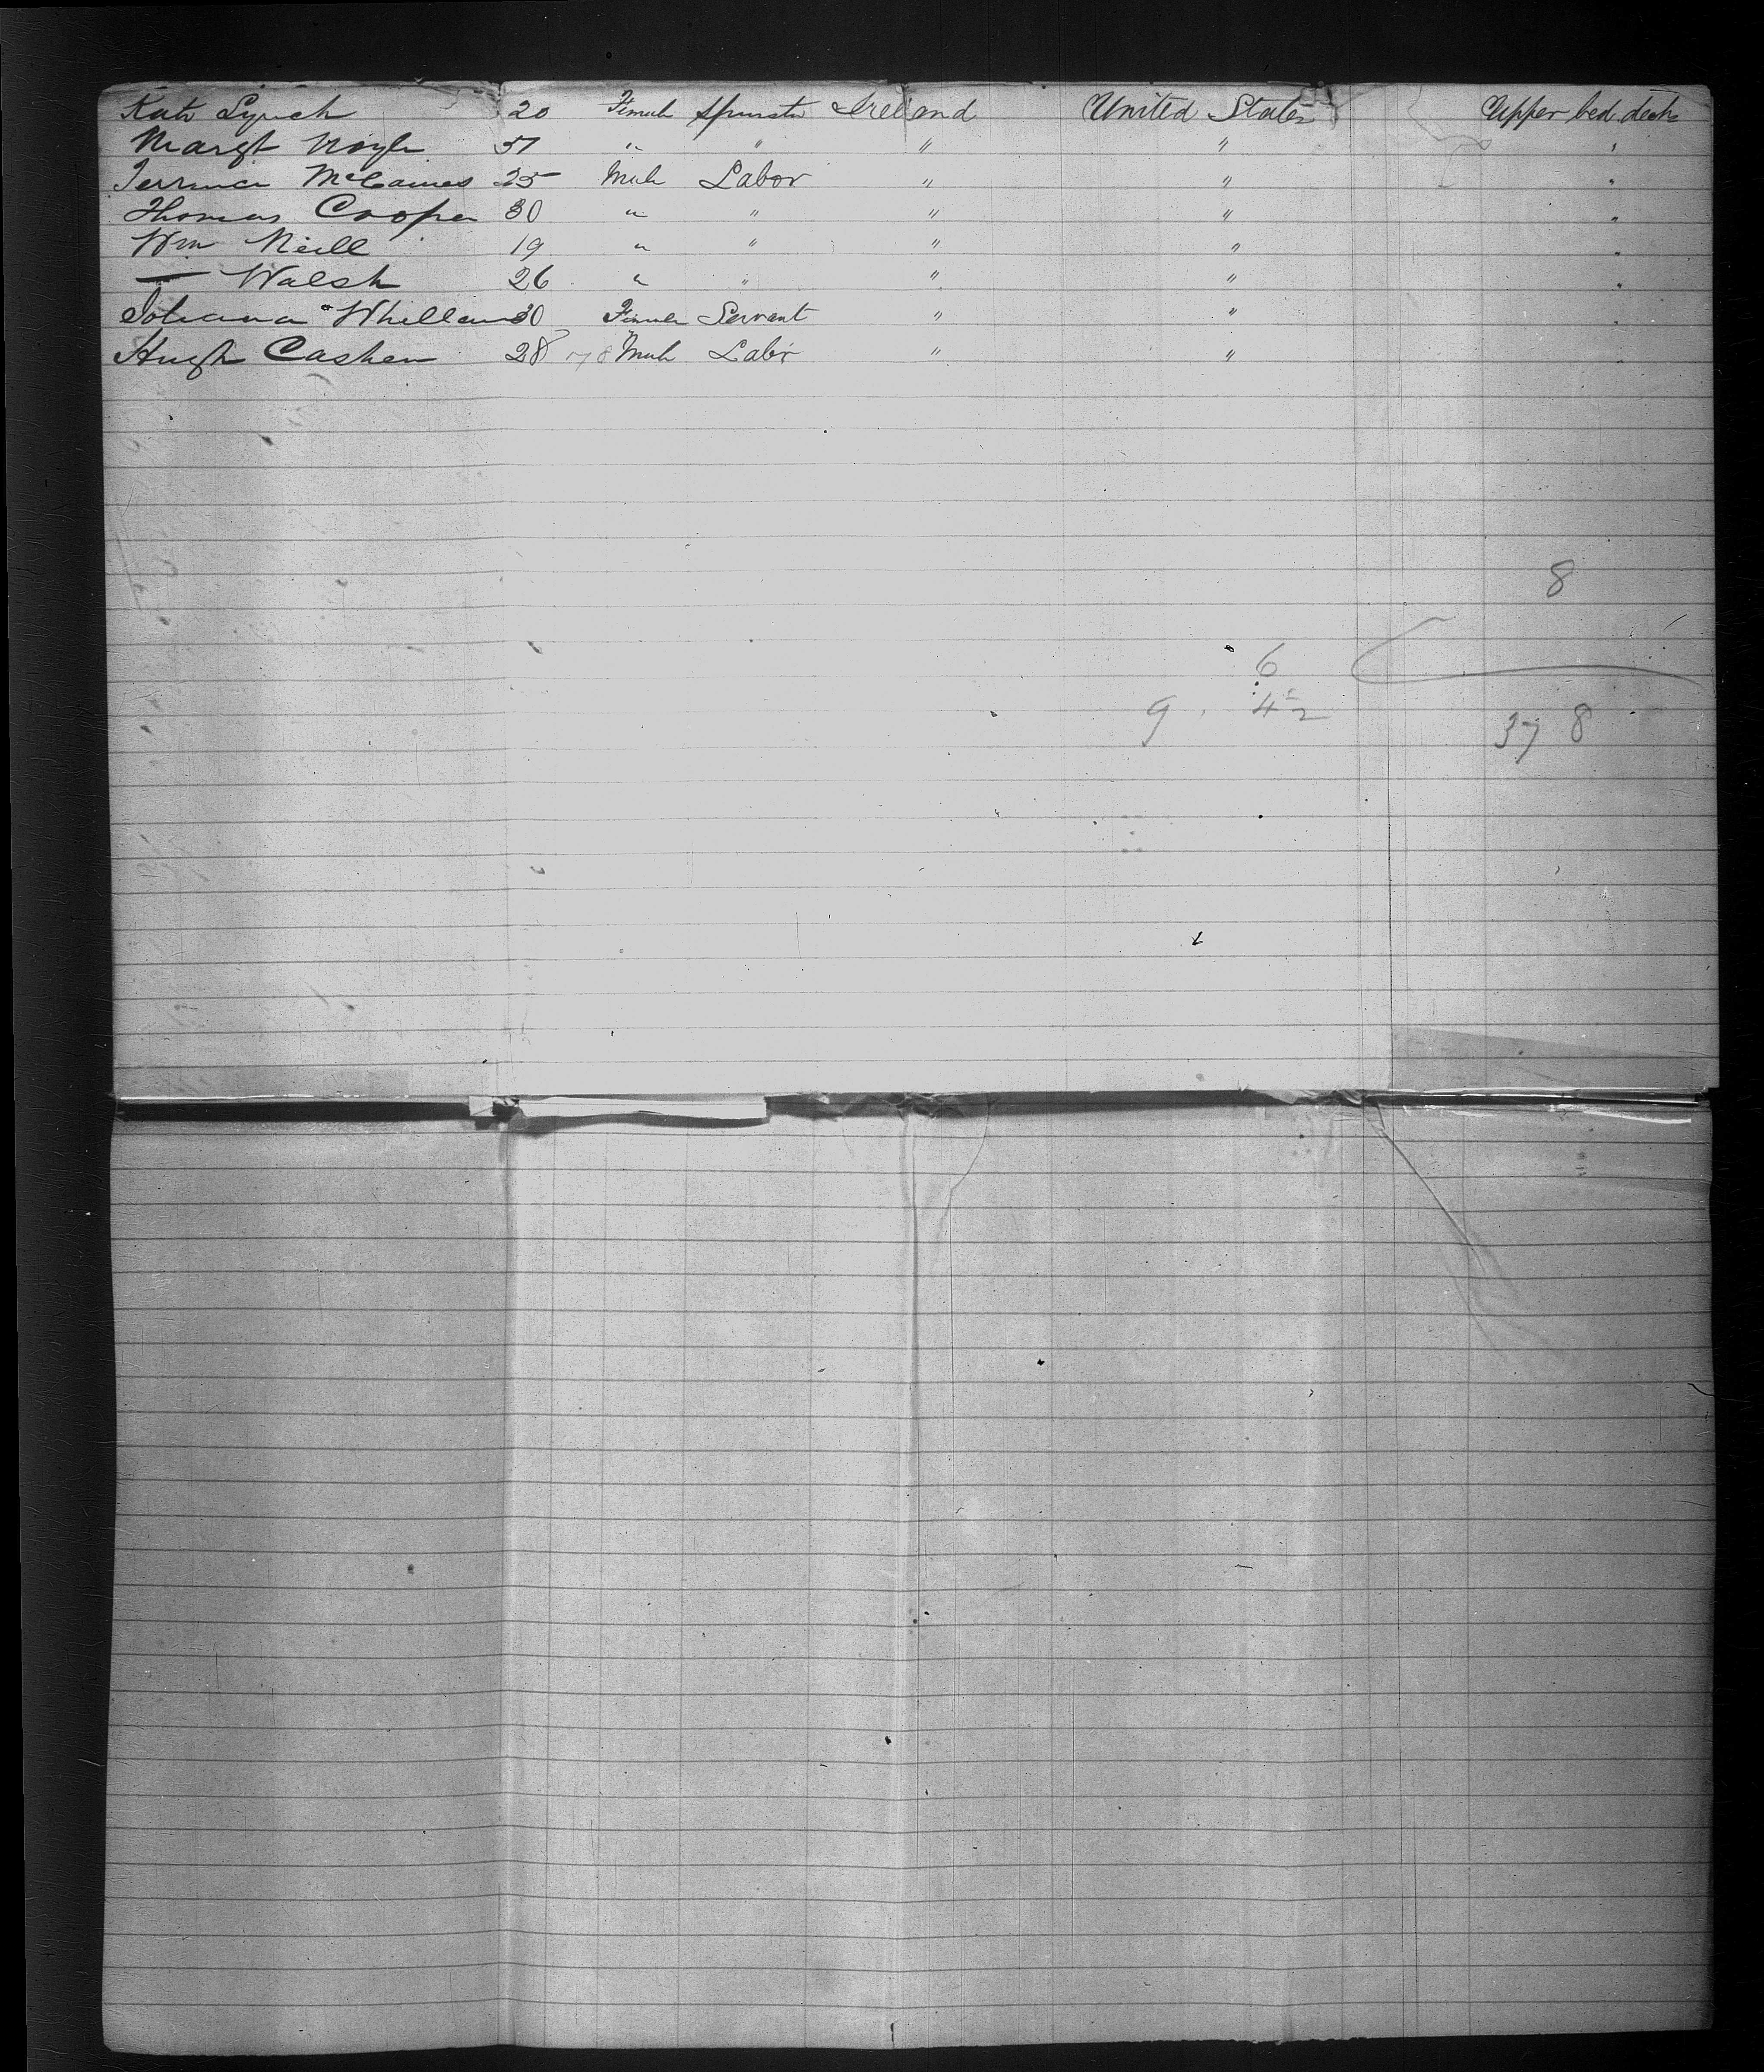 Kate Lynch 20 Female Spinster Ireland United States Upper bed deck
Margt 51 " " " " "
Terrence 25 Male Labor " " "
Thomas Cooper 30 " " " " "
Wm Neill 19 " " " " "
— Walsh 26 " " " " "
Johanna Whellan 30 Female Servant " "
Hugh Cashen 28 Male Labor " " "
8
6
9 4
37 8